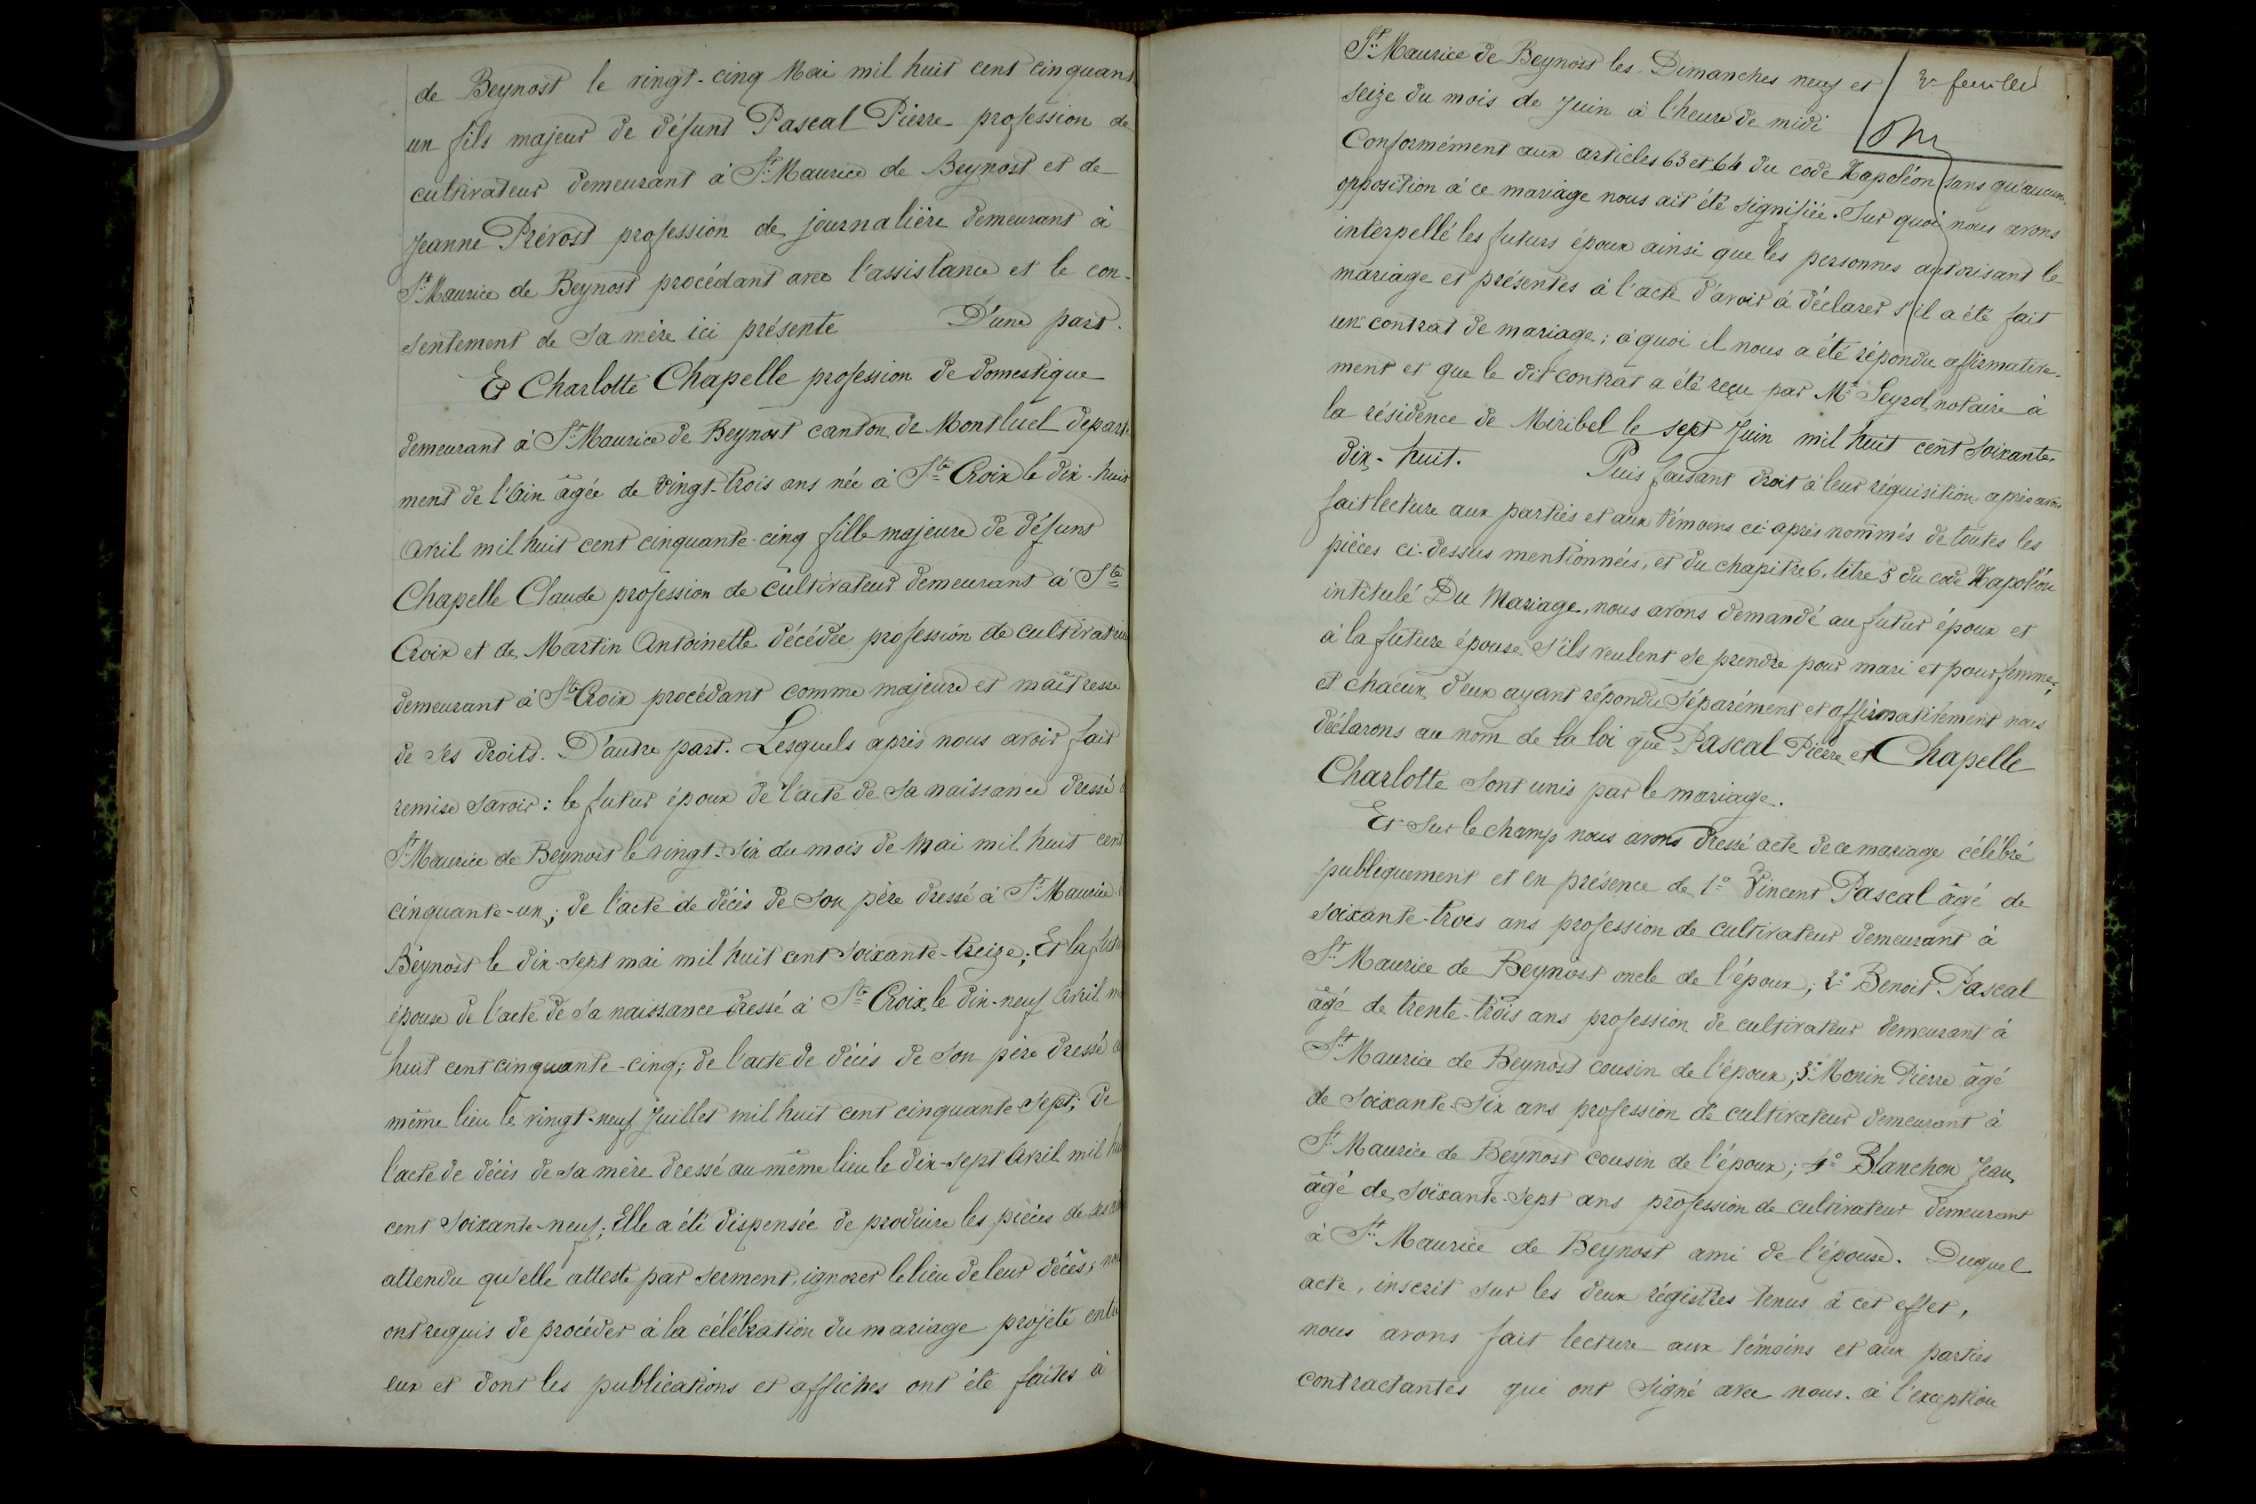 de Beynost le vingt-cinq Mai mil huit cent cinquant
un fils majeur de défunt Pascal Pierre profession de
cultivateur demeurant à St Maurice de Beynost et de
Jeanne Prévost profession de journalière demeurant à
St Maurice de Beynost procédant avec l'assistance et le con-
sentement de sa mère ici présente D'une part.
Et Charlotte Chapelle profession de domestique
demeurant à St Maurice de Beynost canton de Montluel départe-
ment de l'Ain âgée de vingt-trois ans née à Ste Croix le dix-huit
Avril mil huit cent cinquante-cinq fille majeure de défunt
Chapelle Claude profession de cultivateur demeurant à Ste
Croix et de Martin Antoinette décédée profession de cultivatrice
demeurant à Ste Croix procédant comme majeure et maîtresse
de ses droits. D'autre part. Lesquels après nous avoir fait
remise savoir: le futur époux de l'acte de sa naissance dressé à
St Maurice de Beynost le vingt-six du mois de Mai mil huit cent
cinquante-un; de l'acte de décès de son père dressé à St Maurice
Beynost le dix-sept mai mil huit cent soixante-treize; Et la futu
épouse de l'acte de sa naissance dressé à Ste Croix le dix-neuf Avril m
huit cent cinquante-cinq; de l'acte de décès de son père dressé a
même lieu le vingt-neuf Juillet mil huit cent cinquante-sept; de
l'acte de décès de sa mère dressé au même lieu le dix-sept Avril mil hu
cent soixante-neuf; Elle a été dispensée de produire les pièces de
attendu qu'elle atteste par serment, ignorer le lieu de leur décès; nou
ont requis de procéder à la célébration du mariage projeté entre
eux et dont les publications et affiches ont été faites à
St Maurice de Beynost les Dimanches neuf et
seize du mois de Juin à l'heure de midi
2e feuillet
Conformément aux articles 63 et 64 du code Napoléon sans qu'aucune
opposition à ce mariage nous ait été signifiée. Sur quoi nous avons
interpellé les futurs époux ainsi que les personnes autorisant le
mariage et présentes à l'acte d'avoir à déclarer s'il a été fait
un contrat de mariage; à quoi il nous a été répondu affirmative-
ment et que le dit contrat a été reçu par Me Seyzol, notaire à
la résidence de Miribel le sept Juin mil huit cent soixante-
dix-huit. Puis faisant droit à leur réquisition après avoir
fait lecture aux parties et aux témoins ci-après nommés de toutes les
pièces ci-dessus mentionnées, et du chapitre 6, titre 5 du code Napoléon
intitulé Du Mariage, nous avons demandé au futur époux et
à la future épouse s'ils veulent se prendre pour mari et pour femme;
et chacun d'eux ayant répondu séparément et affirmativement nous
déclarons au nom de la loi que Pascal Pierre et Chapelle
Charlotte sont unis par le mariage.
Et sur le champ nous avons dressé acte de ce mariage célébré
publiquement et en présence de 1° Vincent Pascal âgé de
soixante-trois ans profession de cultivateur demeurant à
St Maurice de Beynost oncle de l'époux; 2° Benoit Pascal
âgé de trente-trois ans profession de cultivateur demeurant à
St Maurice de Beynost cousin de l'époux; 3° Morin Pierre âgé
de soixante-six ans profession de cultivateur demeurant à
St Maurice de Beynost cousin de l'époux; 4° Blanchon Jean
âgé de soixante-sept ans profession de cultivateur demeurant
à St Maurice de Beynost ami de l'épouse. Duquel
acte, inscrit sur les deux régistres tenus à cet effet,
nous avons fait lecture aux témoins et aux parties
contractantes qui ont signé avec nous. à l'exception